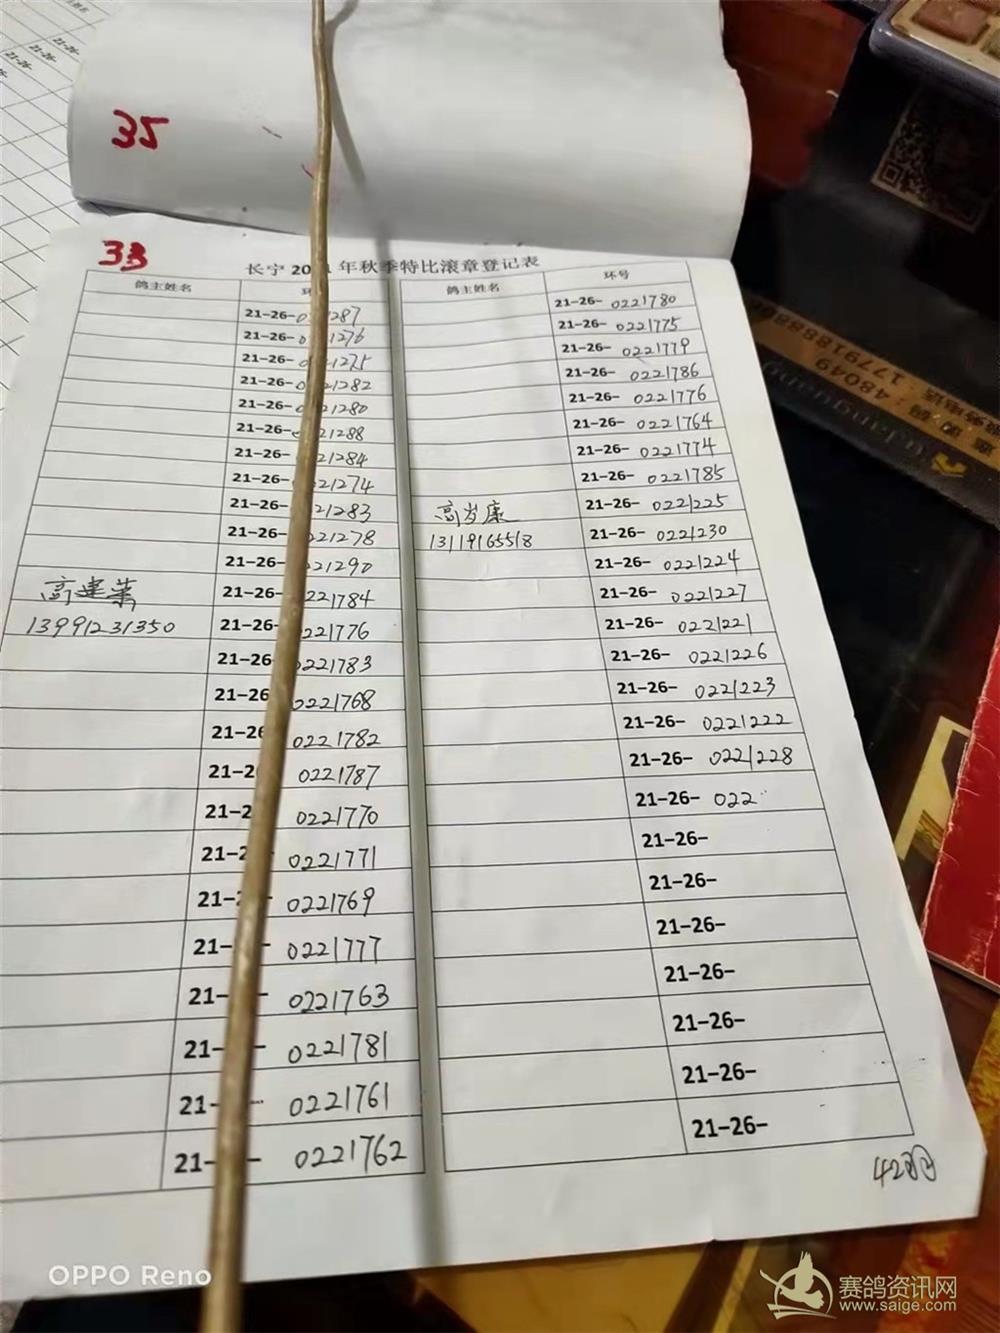 35
33
长宁 20 1年秋季特比滚章登记表
鸽主姓名
鸽主姓名
环号
21-26- 1287
21-26- 1276
21-26- 1275
21-26- 21282
21-26- 21280
21-26- 21288
21-26- 21284
21-26- 21274
21-26- 21283
21-26- 21278
21-26- 21290
高建
21-26- 221784
13991231350
21-26- 221776
21-26 0221783
21-26 0221768
21-26 0221782
21-2 0221787
21-2 0221770
21-2 0221771
21-2 0221769
21- - 0221777
21- - 0221763
21- - 0221781
21- - 0221761
21- - 0221762
21-26- 0221780
21-26- 0221775
21-26- 0221779
21-26- 0221786
21-26- 0221776
21-26- 0221764
21-26- 0221774
21-26- 0221785
高岁康
21-26- 0221225
13119165518
21-26- 0221230
21-26- 0221224
21-26- 0221227
21-26- 0221221
21-26- 0221226
21-26- 0221223
21-26- 0221222
21-26- 0221228
21-26- 022
21-26-
21-26-
21-26-
21-26-
21-26-
21-26-
21-26-
42羽
OPPO Reno
赛鸽资讯网
www.saige.com